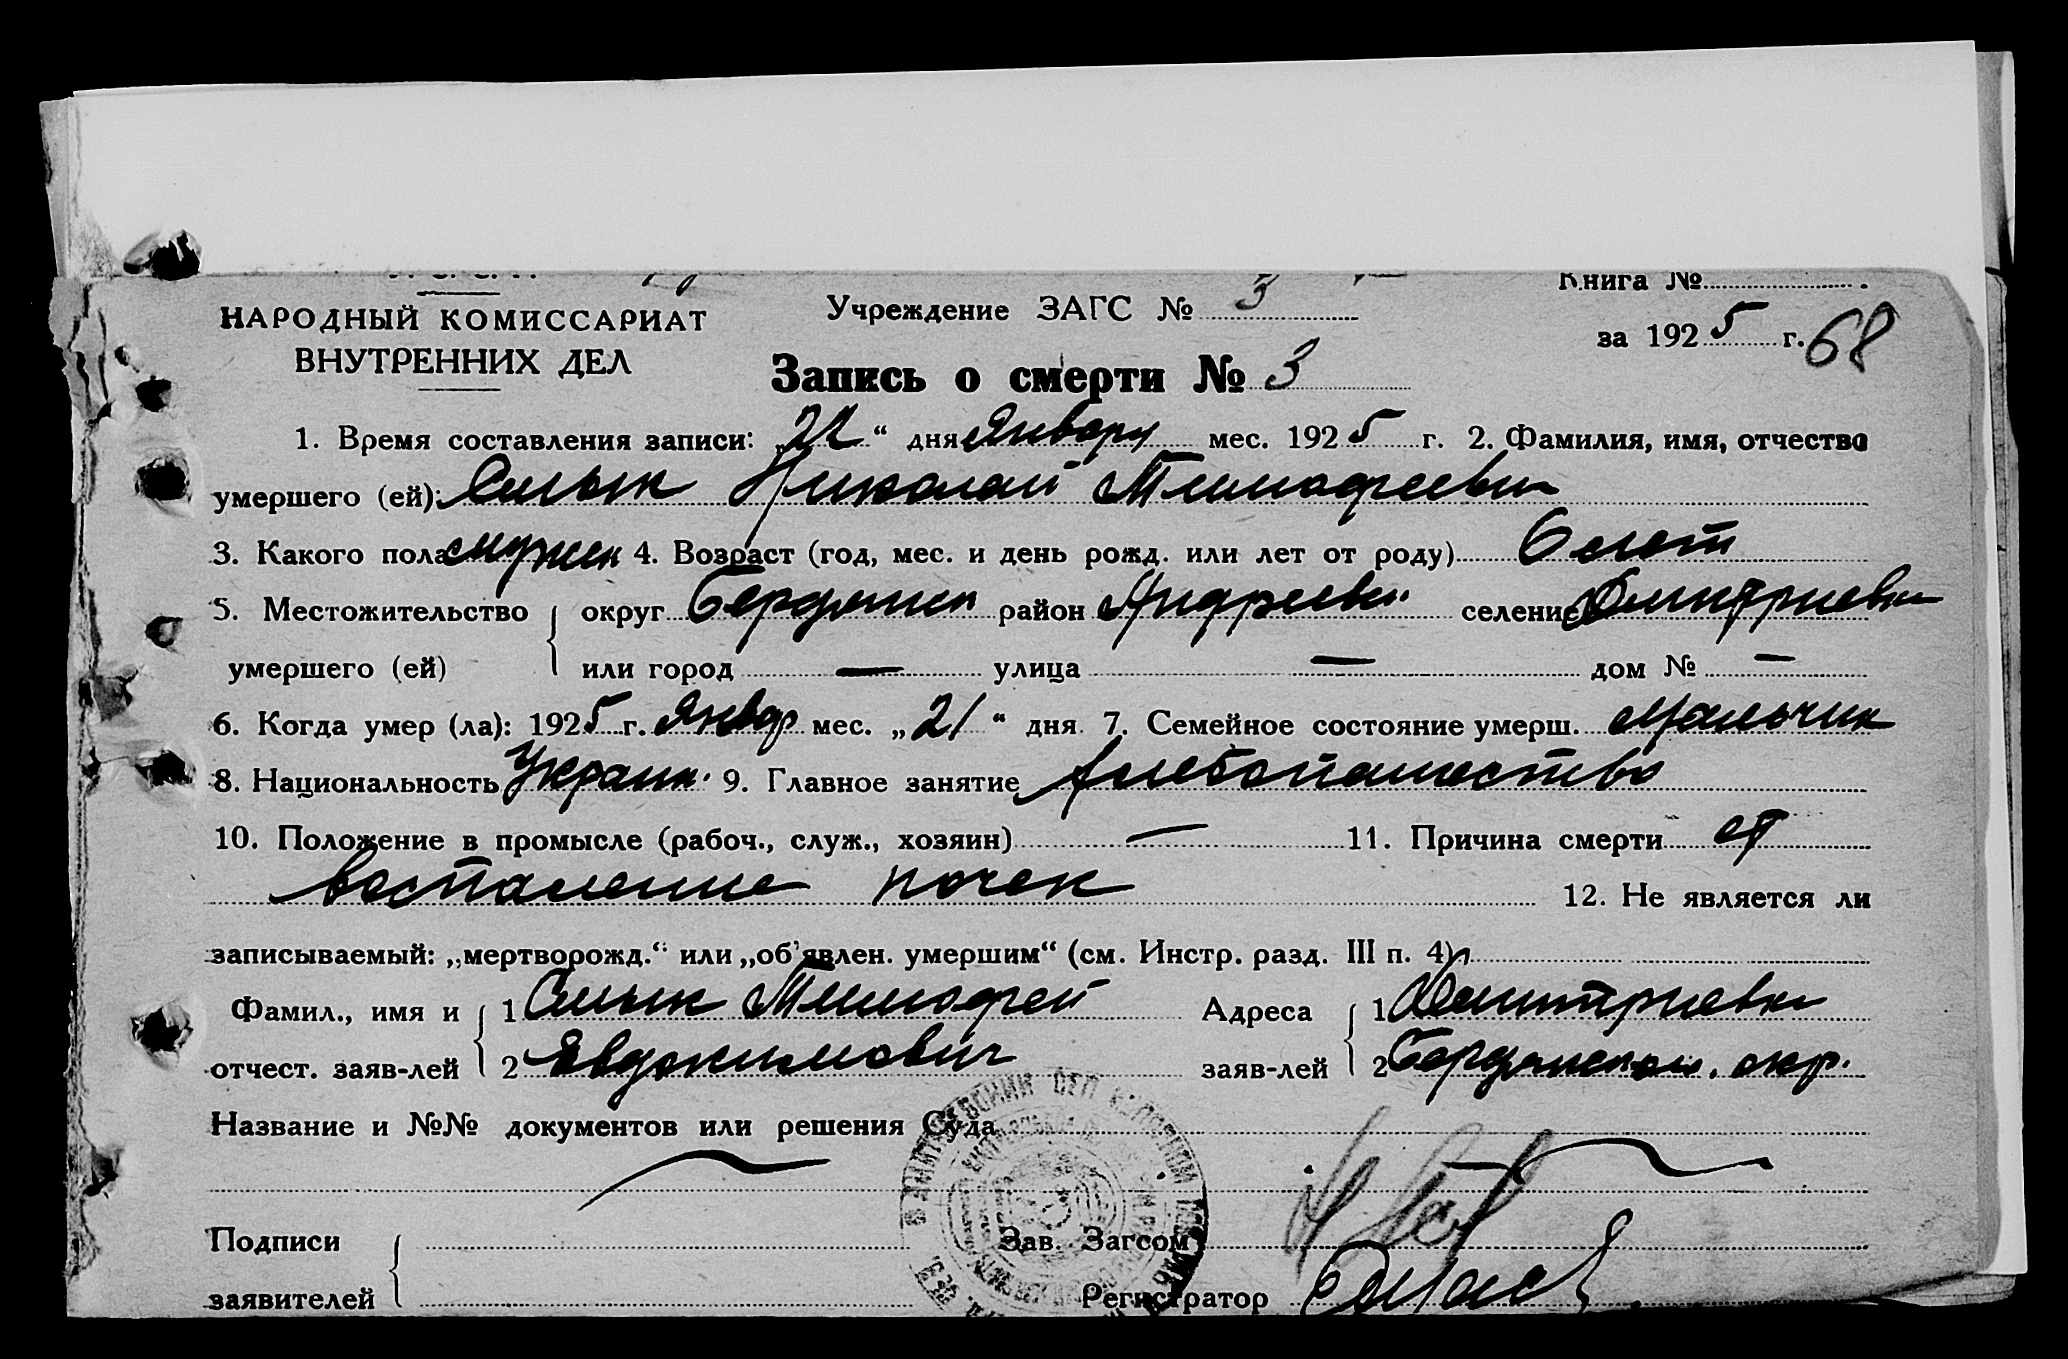 Книга №
НАРОДНЫЙ КОМИССАРИАТ Учреждение ЗАГС № 3
за 1925 г. 68
ВНУТРЕННИХ ДЕЛ
Запись о смерти № 3
1. Время составления записи: „22“ дня Января мес. 1925 г. 2. Фамилия, имя, отчество
умершего (ей): Смык Николай Тимофеевич
3. Какого пола мужск 4. Возраст (год, мес. и день рожд. или лет от роду) 6 лет
5. Местожительство округ Бердянск район Андреевк селение Дмитриевк
умершего (ей) или город — улица — дом № —
6. Когда умер (ла): 1925 г. Январ мес. „21“ дня. 7. Семейное состояние умерш. мальчик
8. Национальность Украин. 9. Главное занятие хлебопашество
10. Положение в промысле (рабоч., служ., хозяин) — 11. Причина смерти от
воспаление почек 12. Не является ли
записываемый: „мертворожд.“ или „об'явлен. умершим“ (см. Инстр. разд. III п. 4)
Фамил., имя и 1 Смык Тимофей Адреса 1 Дмитриевк
отчест. заяв-лей 2 Явдокимович заяв-лей 2 Бердянском. окр.
Название и №№ документов или решения Суда
Подписи Зав. Загсом
заявителей Регистратор